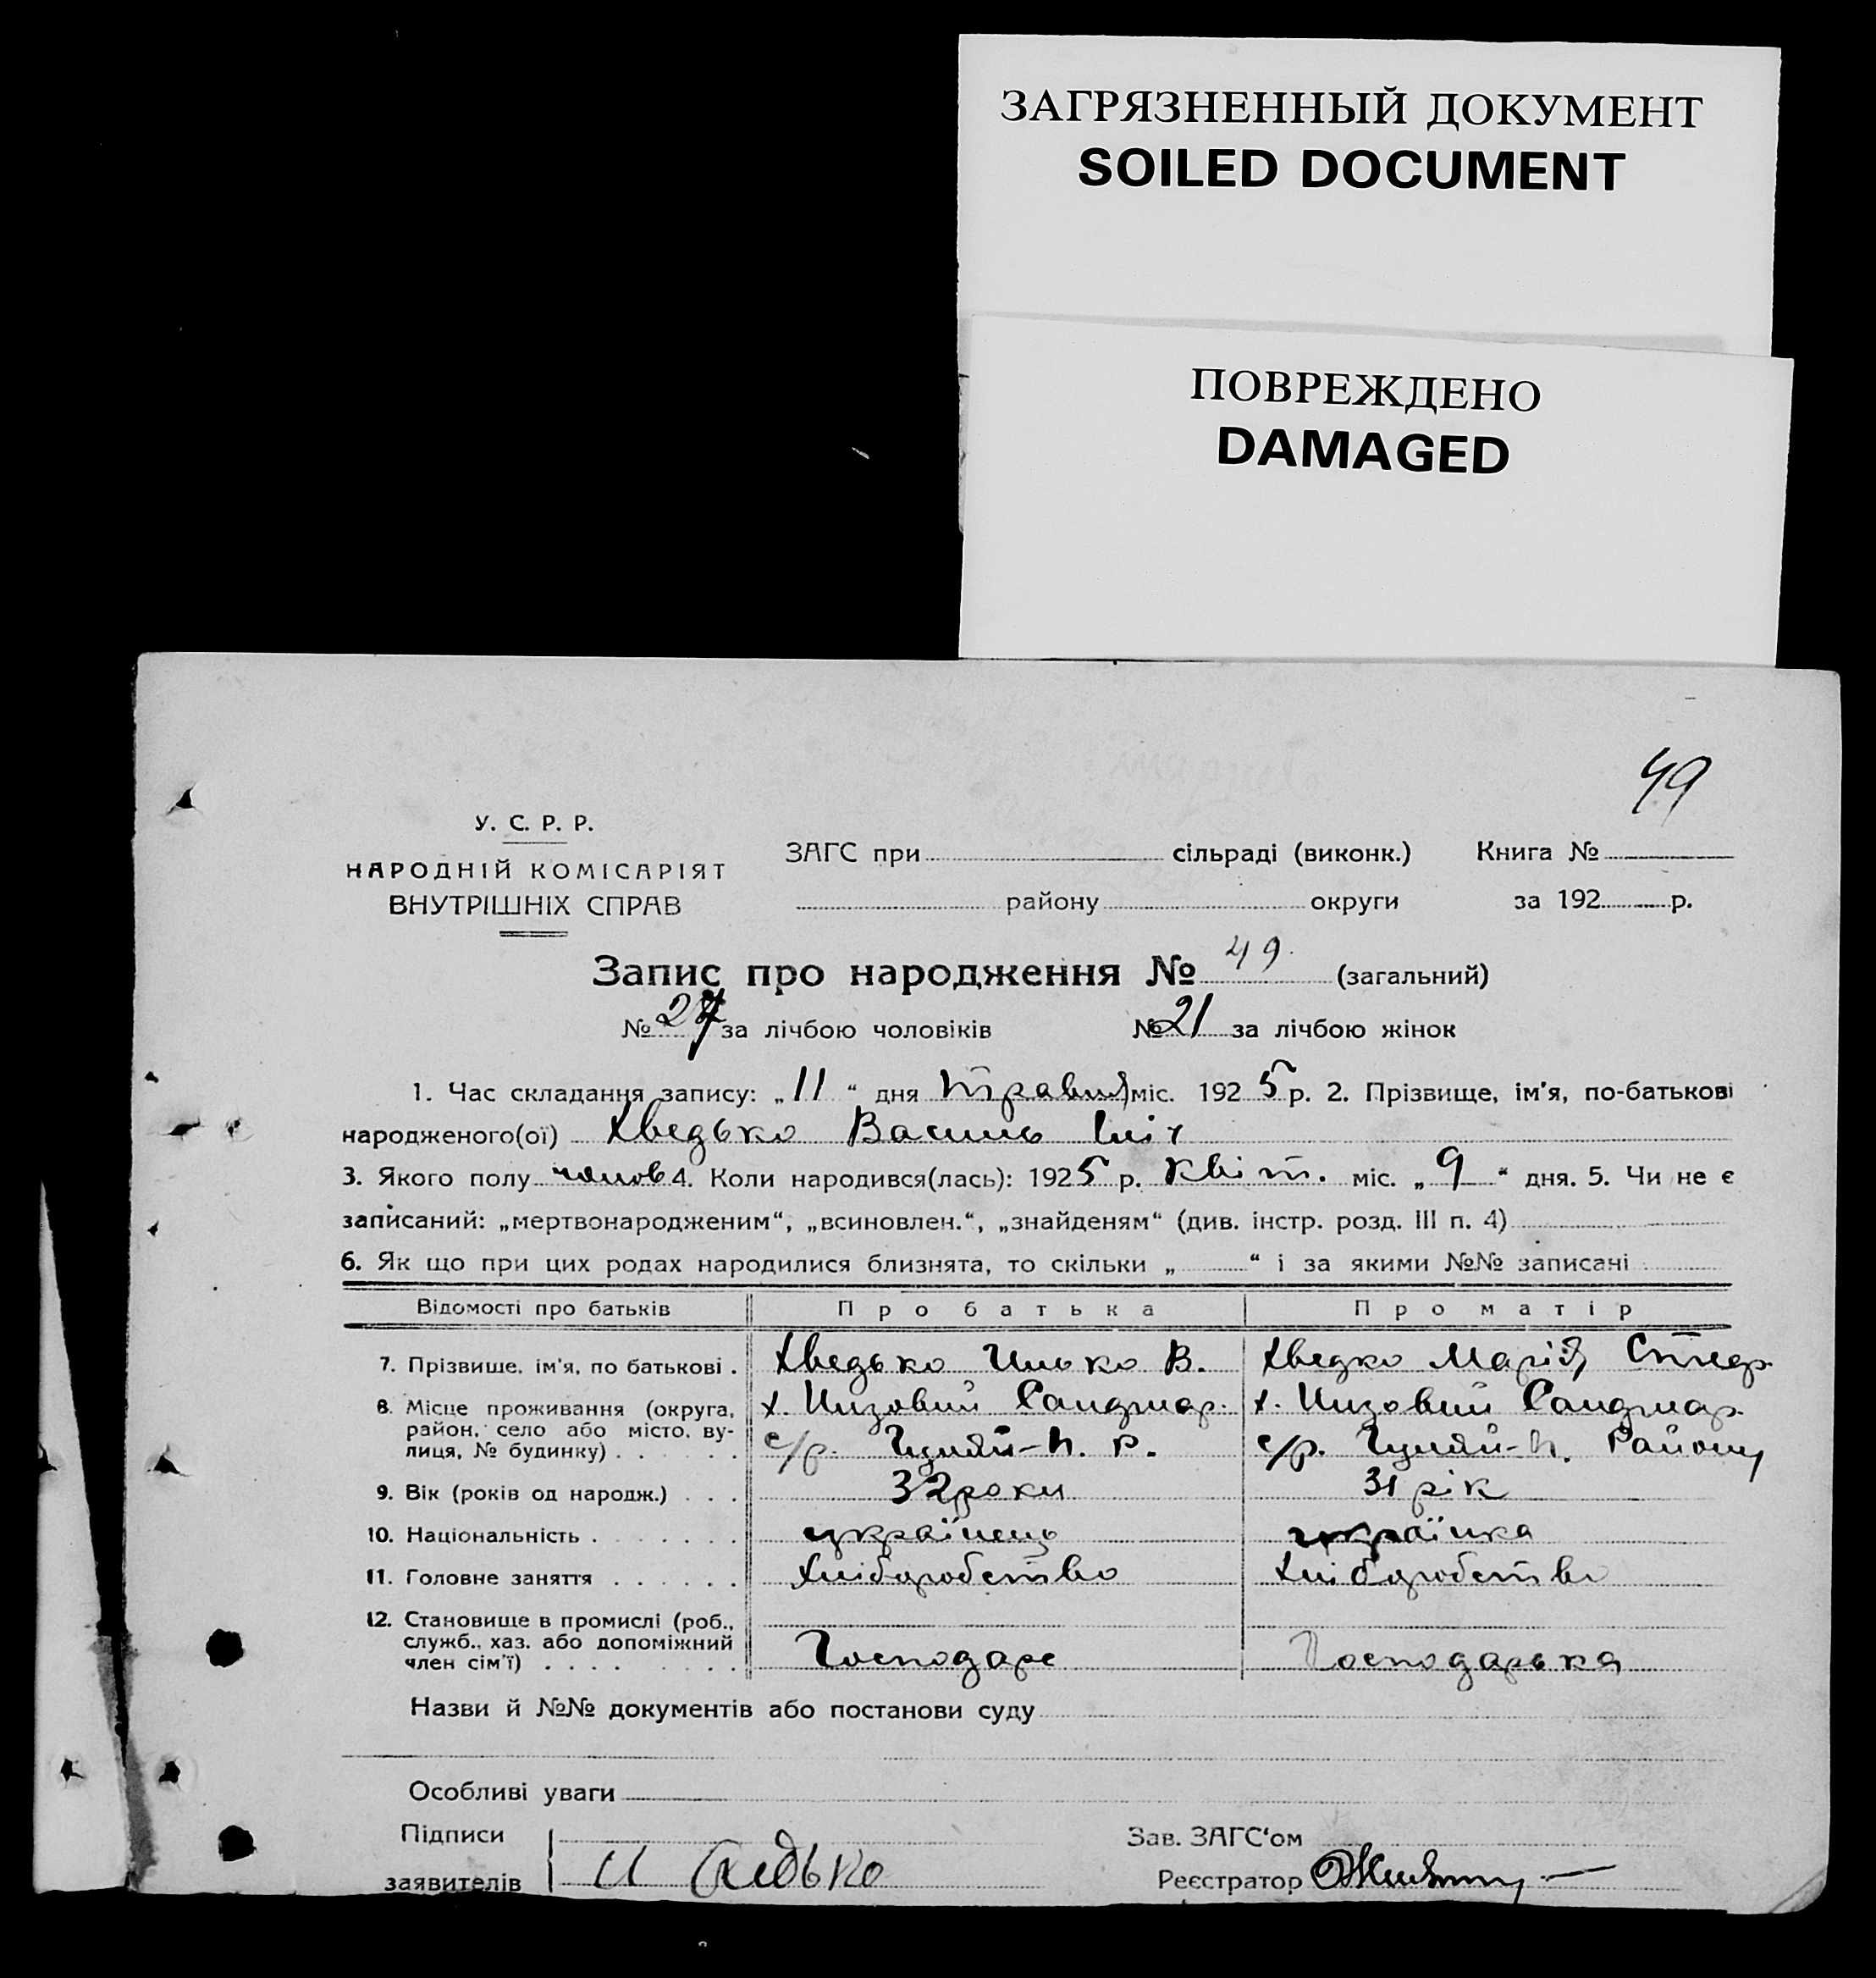 ЗАГРЯЗНЕННЫЙ ДОКУМЕНТ
SOILED DOCUMENT
ПОВРЕЖДЕНО
DAMAGED
49
У. С. Р. Р.
НАРОДНІЙ КОМІСАРІЯТ
ВНУТРІШНІХ СПРАВ
ЗАГС при сільраді (виконк.) Книга №
району округи за 192 р.
Запис про народження № 49. (загальний)
№ 27 за лічбою чоловіків № 21 за лічбою жінок
1. Час складання запису: „11“ дня травня міс. 1925 р. 2. Прізвище, ім'я, по-батькові
народженого(ої) Хведько Василь Іліч
3. Якого полу чолов 4. Коли народився(лась): 1925 р. Квіт. міс. „9“ дня. 5. Чи не є
записаний: „мертвонародженим“, „всиновлен.“, „знайденям“ (див. інстр. розд. III п. 4)
6. Як що при цих родах народилися близнята, то скільки „ “ і за якими №№ записані
Відомості про батьків Про батька Про матір
7. Прізвище, ім'я, по батькові . Хведько Илько В. Хведко Марія
8. Місце проживання (округа, х. Низовий Санджар. х. Низовий Санджар.
район, село або місто, ву-
лиця, № будинку) . . . . . с/р. Гуляй-П. Р. с/р. Гуляй-П. Району
9. Вік (років од народж.) . . . 32 роки 31 рік
10. Національність . . . . . . . українець українка
11. Головне заняття . . . . . . Хліборобство Хліборобство
12. Становище в промислі (роб.,
служб., хаз. або допоміжний
член сім'ї) . . . . . . . . . Господарь Господарька
Назви й №№ документів або постанови суду
Особливі уваги
Підписи Зав. ЗАГС'ом
заявителів И Хведько Реєстратор